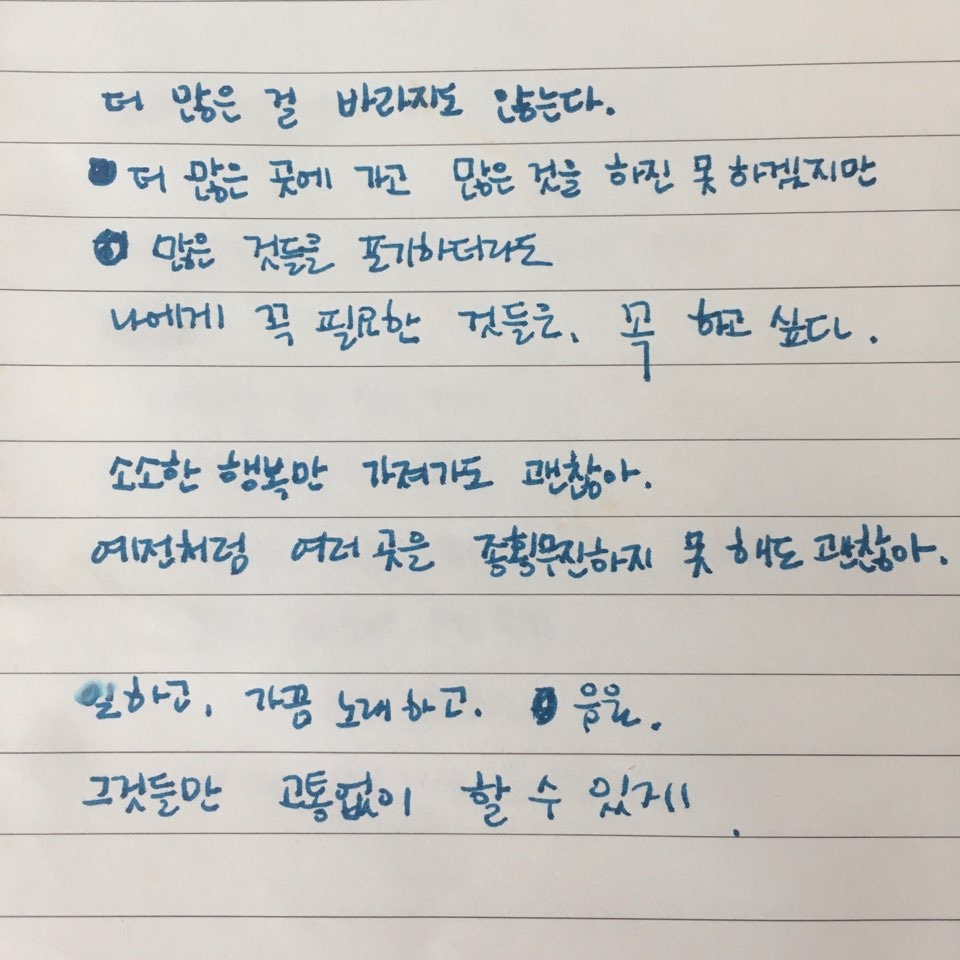 더 많은 걸 바라지도 않는다.
더 많은 곳에 가고 많은 것을 하진 못 하겠지만
많은 것들을 포기하더라도
나에게 꼭 필요한 것들은, 꼭 하고 싶다.
소소한 행복만 가져가도 괜찮아.
예전처럼 여러 곳을 종횡무진하지 못 해도 괜찮아.
일하고, 가끔 노래하고.
그것들만 고통없이 할 수 있게.